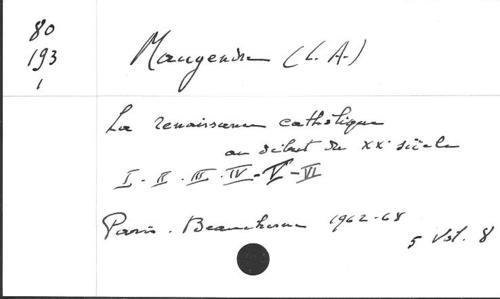 80
193
1
Maugendre (L. A.)
La renaissance catholique
au début du XXe siècle
I - II - III - IV - V - VI
Paris - Beauchesne 1962-68
5 Vol. 8